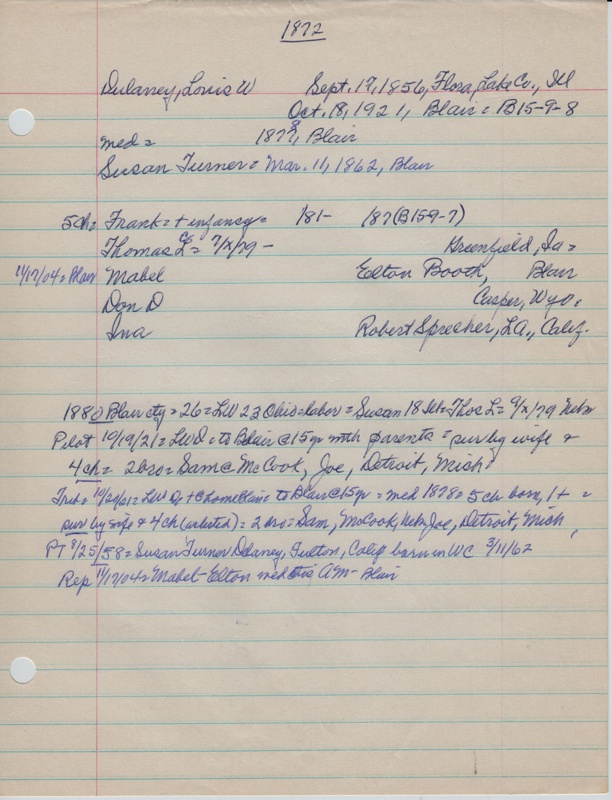 1872
Dulaney, Louis W Sept. 17, 1856, Flora, Lake Co., Ill
Oct. 18, 1921, Blair = B15-9-8
med = 1878, Blair
Susan Turner = Mar. 11, 1862, Blair
5 ch = Frank = + infancy = 181- 187 (B15-9-7)
Thomas L = 9/X/79 - Greenfield, Ia =
11/17/04 = Blair Mabel Elton Booth, Blair
Don D Casper, Wyo.
Ina Robert Sprecher, LA., Calif.
1880 Blair cty = 26 = LW 23 Ohio = labor = Susan 18 = Thos L = 9/X/79 Nebr
Pilot 10/19/21 = LW D = to Blair @ 15 yr with parents = sur by wife &
4 ch = 2 bro = Sam @ McCook, Joe, Detroit, Mich
Trib = 10/20/21 = LW D + @ home Blair = to Blair @ 15 yr = med 1878 = 5 ch born, 1 + =
sur by wife & 4 ch (as listed) = 2 bro = Sam, McCook, Nebr Joe, Detroit, Mich,
PT 9/25/58 = Susan Turner Delaney, Fulton, Calif born in WC 3/11/62
Rep 11/17/04 = Mabel - Elton med this AM - Blair